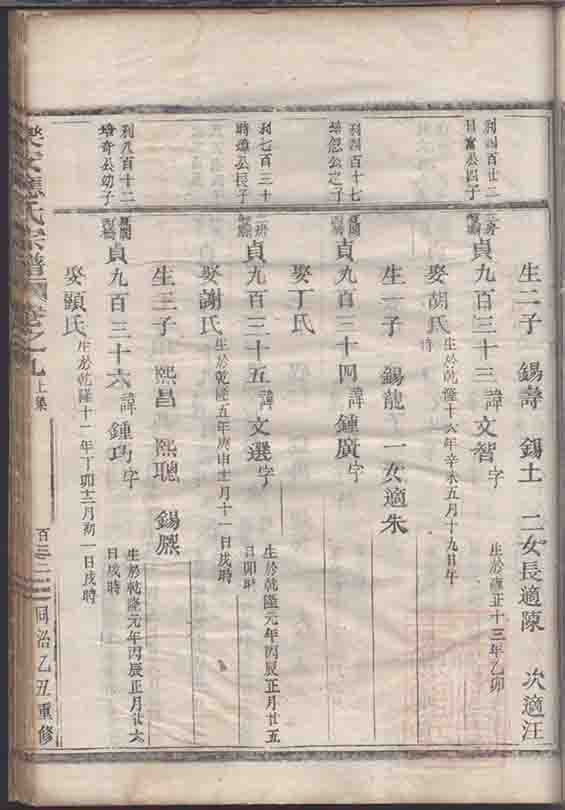 生二子 錫壽 錫土 二女長適陳 次適汪
利四百廿二
日富公四子
貞九百三十三諱文智字
生於雍正十三年乙卯
娶胡氏生於乾隆十六年辛未五月十九日午
時
生一子 錫龍 一女適朱
利四百十七
公之子
貞九百三十四諱鍾廣字
娶丁氏
利七百三十一
時雄公長子
貞九百三十五諱文選字
生於乾隆元年丙辰正月廿五
日卯時
娶謝氏生於乾隆五年庚申十一月十一日戌時
生三子 熙昌 熙聰 錫熈
利八百十二
培奇公幼子
貞九百三十六諱鍾巧字
生於乾隆元年丙辰正月廿六
日戌時
娶顕氏生於乾隆十一年丁卯十二月初一日戌時
應氏宗譜 卷之九上集 同治乙丑重修